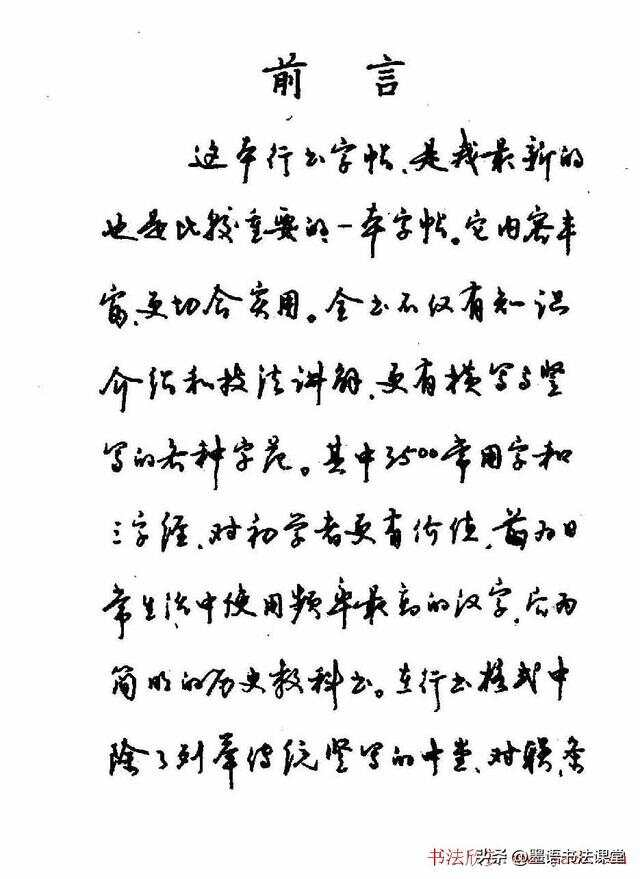 前言
这本行书字帖，是我最新的
也是比较重要的一本字帖。它内容丰
富，更切合实用。全书不仅有知识
介绍和技法讲解，更有横写与竖
写的各种字范。其中3500常用字和
三字经，对初学者更有价值，前为日
常生活中使用频率最高的汉字，后为
简明的历史教科书。在行书格式中
除了列举传统竖写的中堂、对联、条
书法欣赏
头杀 @墨语书法课堂